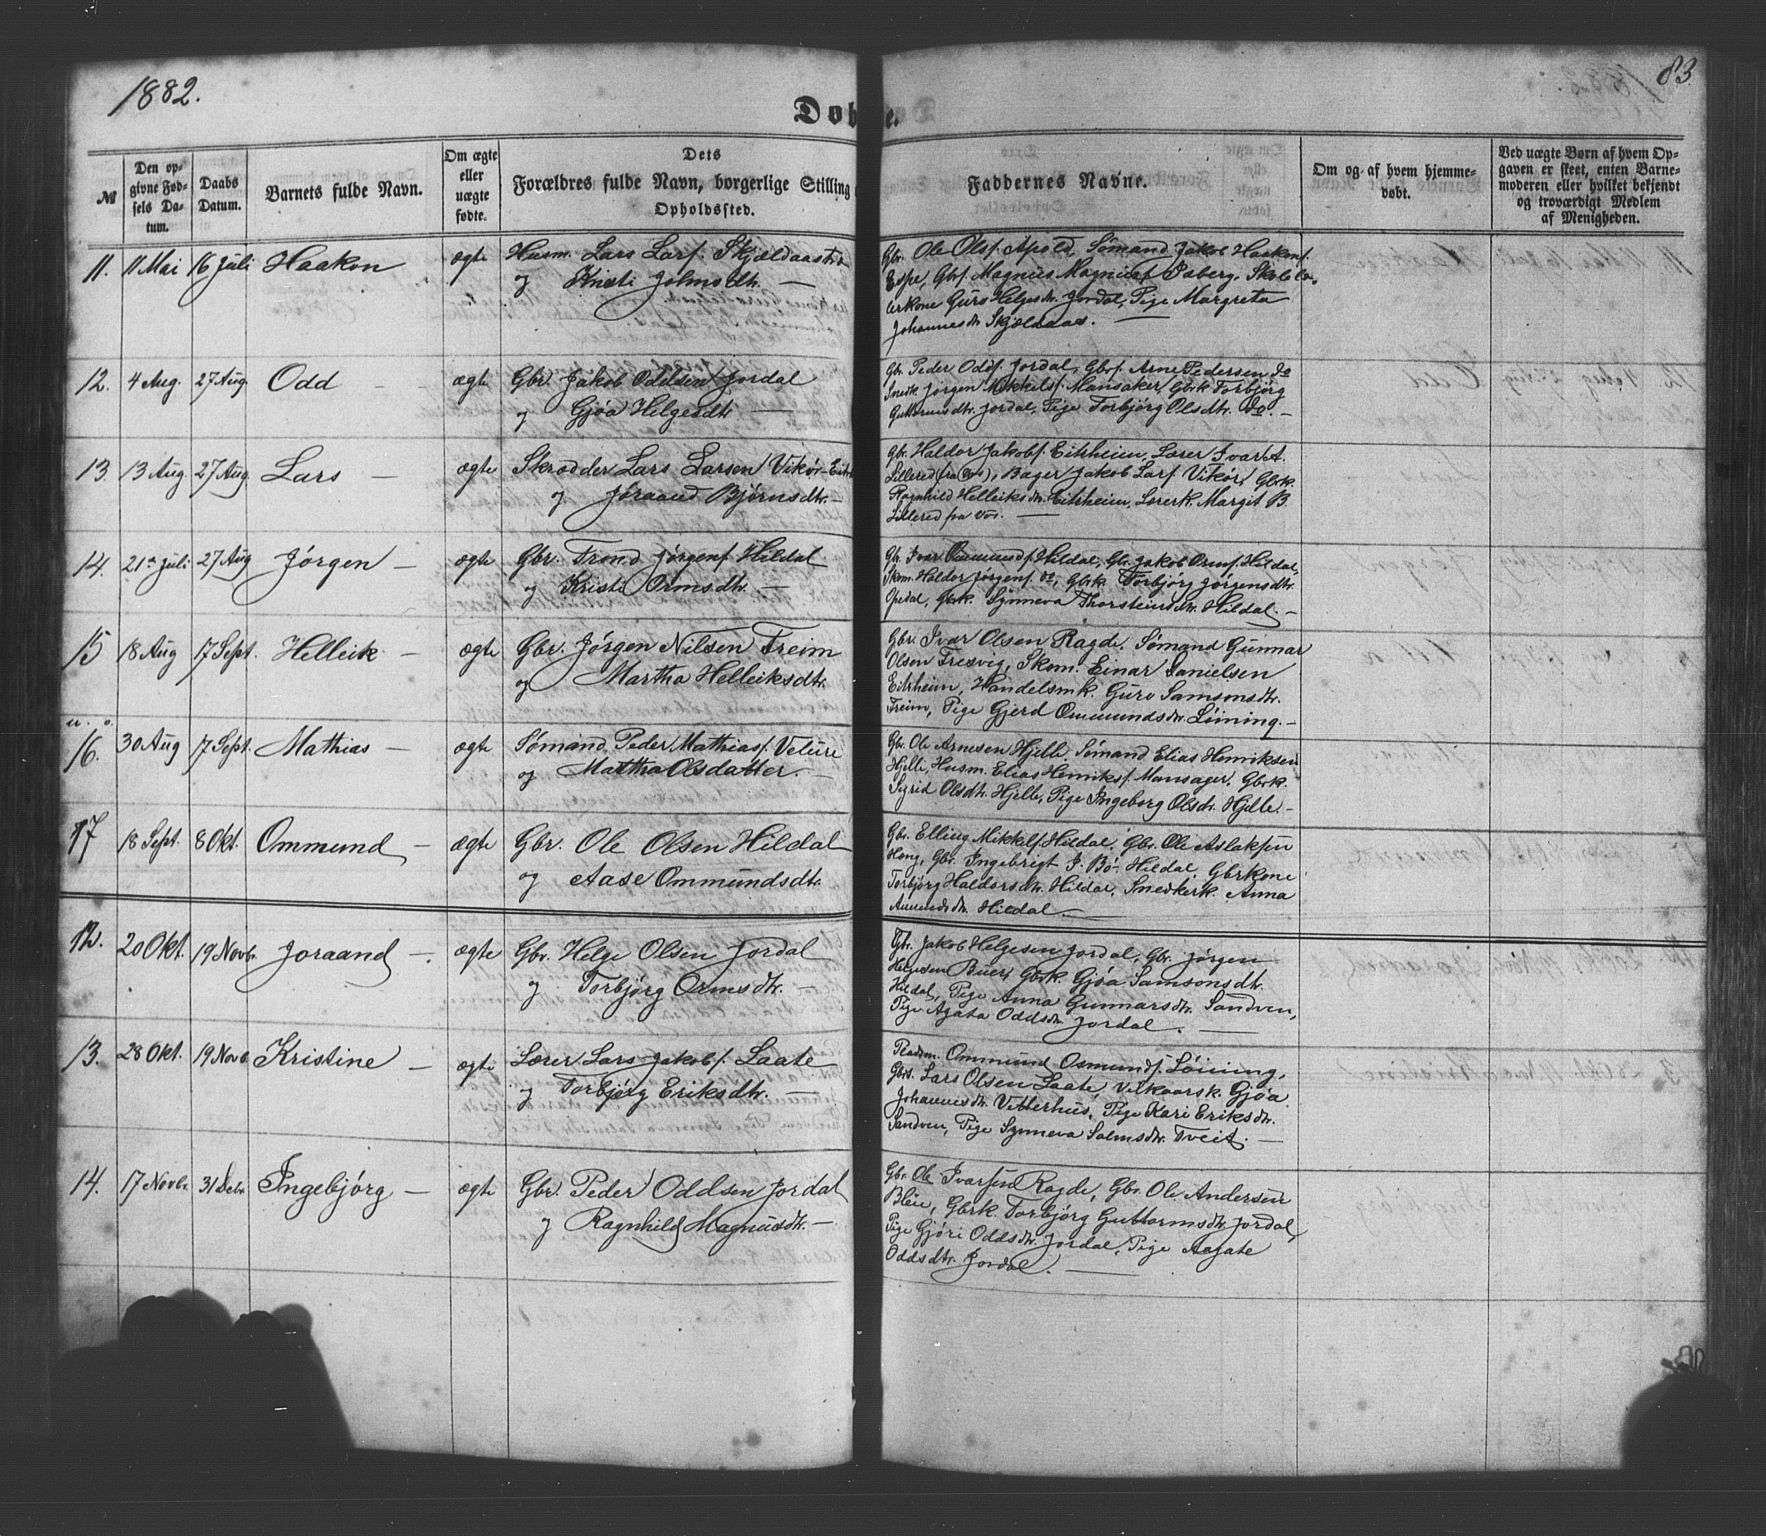 1882.
83.
Døbte.
№
Den op-
givne Fød-
sels Da-
tum.
Daabs
Datum.
Barnets fulde Navn.
Om ægte
eller
uægte
fødte.
Dets
Forældres fulde Navn, borgerlige Stilling
Opholdssted.
Faddernes Navne.
Om og af hvem hjemme-
døbt.
Ved uægte Børn af hvem Op-
gaven er skeet, enten Barne-
moderen eller hvilket bekjendt
og troværdigt Medlem
af Menigheden.
11. 11 Mai 16 Juli Haakon ægte Husm. Lars Larsf. Skjeldaas
og Kristi Johnsdtr. —
Gbr. Ole Olsf. Apold, Sømand Jakob Haakonsf.
Espe, Gbf. Magnus Magnusf. Aaberg, Skole-
lærerkone Guro Helgesdtr. Jordal, Pige Margreta
Johannesdtr. Skjeldaas. —
12. 4 Aug. 27 Aug. Odd – ægte Gbr. Jakob Oddsen Jordal
og Gjøa Helgesdtr. —
Gbr. Peder Oddsf. Jordal, Gbrs. Arne Pedersen do
Snedk. Jørgen Mikkelsf. Mansaker, Gbrk. Torbjørg
Guttormsdtr. Jordal, Pige Torbjørg Olsdtr. do. –
13. 13 Aug 27 Aug. Lars – ægte Skrædder Lars Larsen Vikør-Eitrh
og Jøraand Bjørnsdtr. –
Gbr. Haldor Jakobsf. Eitrheim, Lærer Ivar A.
Lillered (fra Vos), Bager Jakob Larsf. Vikør, Gbrk.
Ragnhild Helleiksdtr. Eitrheim, Lærerk. Margit B.
Lillered fra Vos. —
14. 21de Juli 27 Aug Jørgen – ægte Gbr. Trond Jørgensf. Hildal
og Kristi Ormsdtr. –
Gbr. Ivar Ommundsf. Hildal, Gbr. Jakob Ormsf. Hildal,
Skom. Haldor Jørgensf. do, Gbrk. Torbjørg Jørgensdtr.
Opedal, Gbrk. Synneva Thorsteinsdtr. Hildal. –
15 18 Aug 17 Sept. Helleik – ægte Gbr. Jørgen Nilsen Freim
og Martha Helleiksdtr.
Gbr. Ivar Olsen Ragde, Sømand Gunnar
Olsen Tresvig, Skom. Einar Danielsen
Eitrheim, Handelsmk. Guro Samsonsdtr.
Freim, Pige Gjerd Ommundsdtr. Løining. –
u. o.
16. 30 Aug 17 Sept. Mathias – ægte Sømand Peder Mathiasf. Veture
og Martha Olsdatter. –
Gbr. Ole Arnesen Hjelle, Sømand Elias Henriksen
Hjelle, Husm. Elias Henriksf. Mansager, Gbrk.
Sigrid Olsdtr. Hjelle, Pige Ingeborg Olsdtr. Hjelle –
17 18 Sept. 8 Okt. Ommund – ægte Gbr. Ole Olsen Hildal
og Aase Ommundsdtr.
Gbr. Elling Mikkelsf. Hildal, Gbr. Ole Aslaksen
Hong, Gbr. Ingebrigt J. Bø Hildal, Gbrkone
Torbjørg Haldorsdtr. Hildal, Snedkerk. Anna
Hildal. –
12. 20 Okt. 19 Novbr. Joraand –. ægte Gbr. Helge Olsen Jordal
og Torbjørg Ormsdtr. –
Gbr. Jakob Helgesen Jordal, Gbr. Jørgen
Helgesen Buer, Gbrk. Gjøa Samsonsdtr.
Hildal, Pige Anna Gunnarsdtr. Sandven,
Pige Agata Oddsdtr. Jordal. —
13. 28 Okt. 19 Novb. Kristine – ægte Lærer Lars Jakobsf. Laate
og Torbjørg Eriksdtr. –
Ommund Osmundsf. Løining,
Gbrs. Lars Olsen Laate, Vilkaarsk. Gjøa
Johannesdtr. Vetterhus, Pige Kari Eriksdtr.
Sandven, Pige Synneva Salmsdtr. Tveit. –
14. 17 Novbr. 31 Debr. Ingebjørg – ægte Gbr. Peder Oddsen Jordal
og Ragnhild Magnusdtr. –
Gbr. Ole Ivarsen Ragde, Gbr. Ole Andersen
Bleie, Gbrk. Torbjørg Guttormsdtr. Jordal,
Pige Gjøri Oddsdtr. Jordal, Pige Aagate
Oddsdtr. Jordal. —